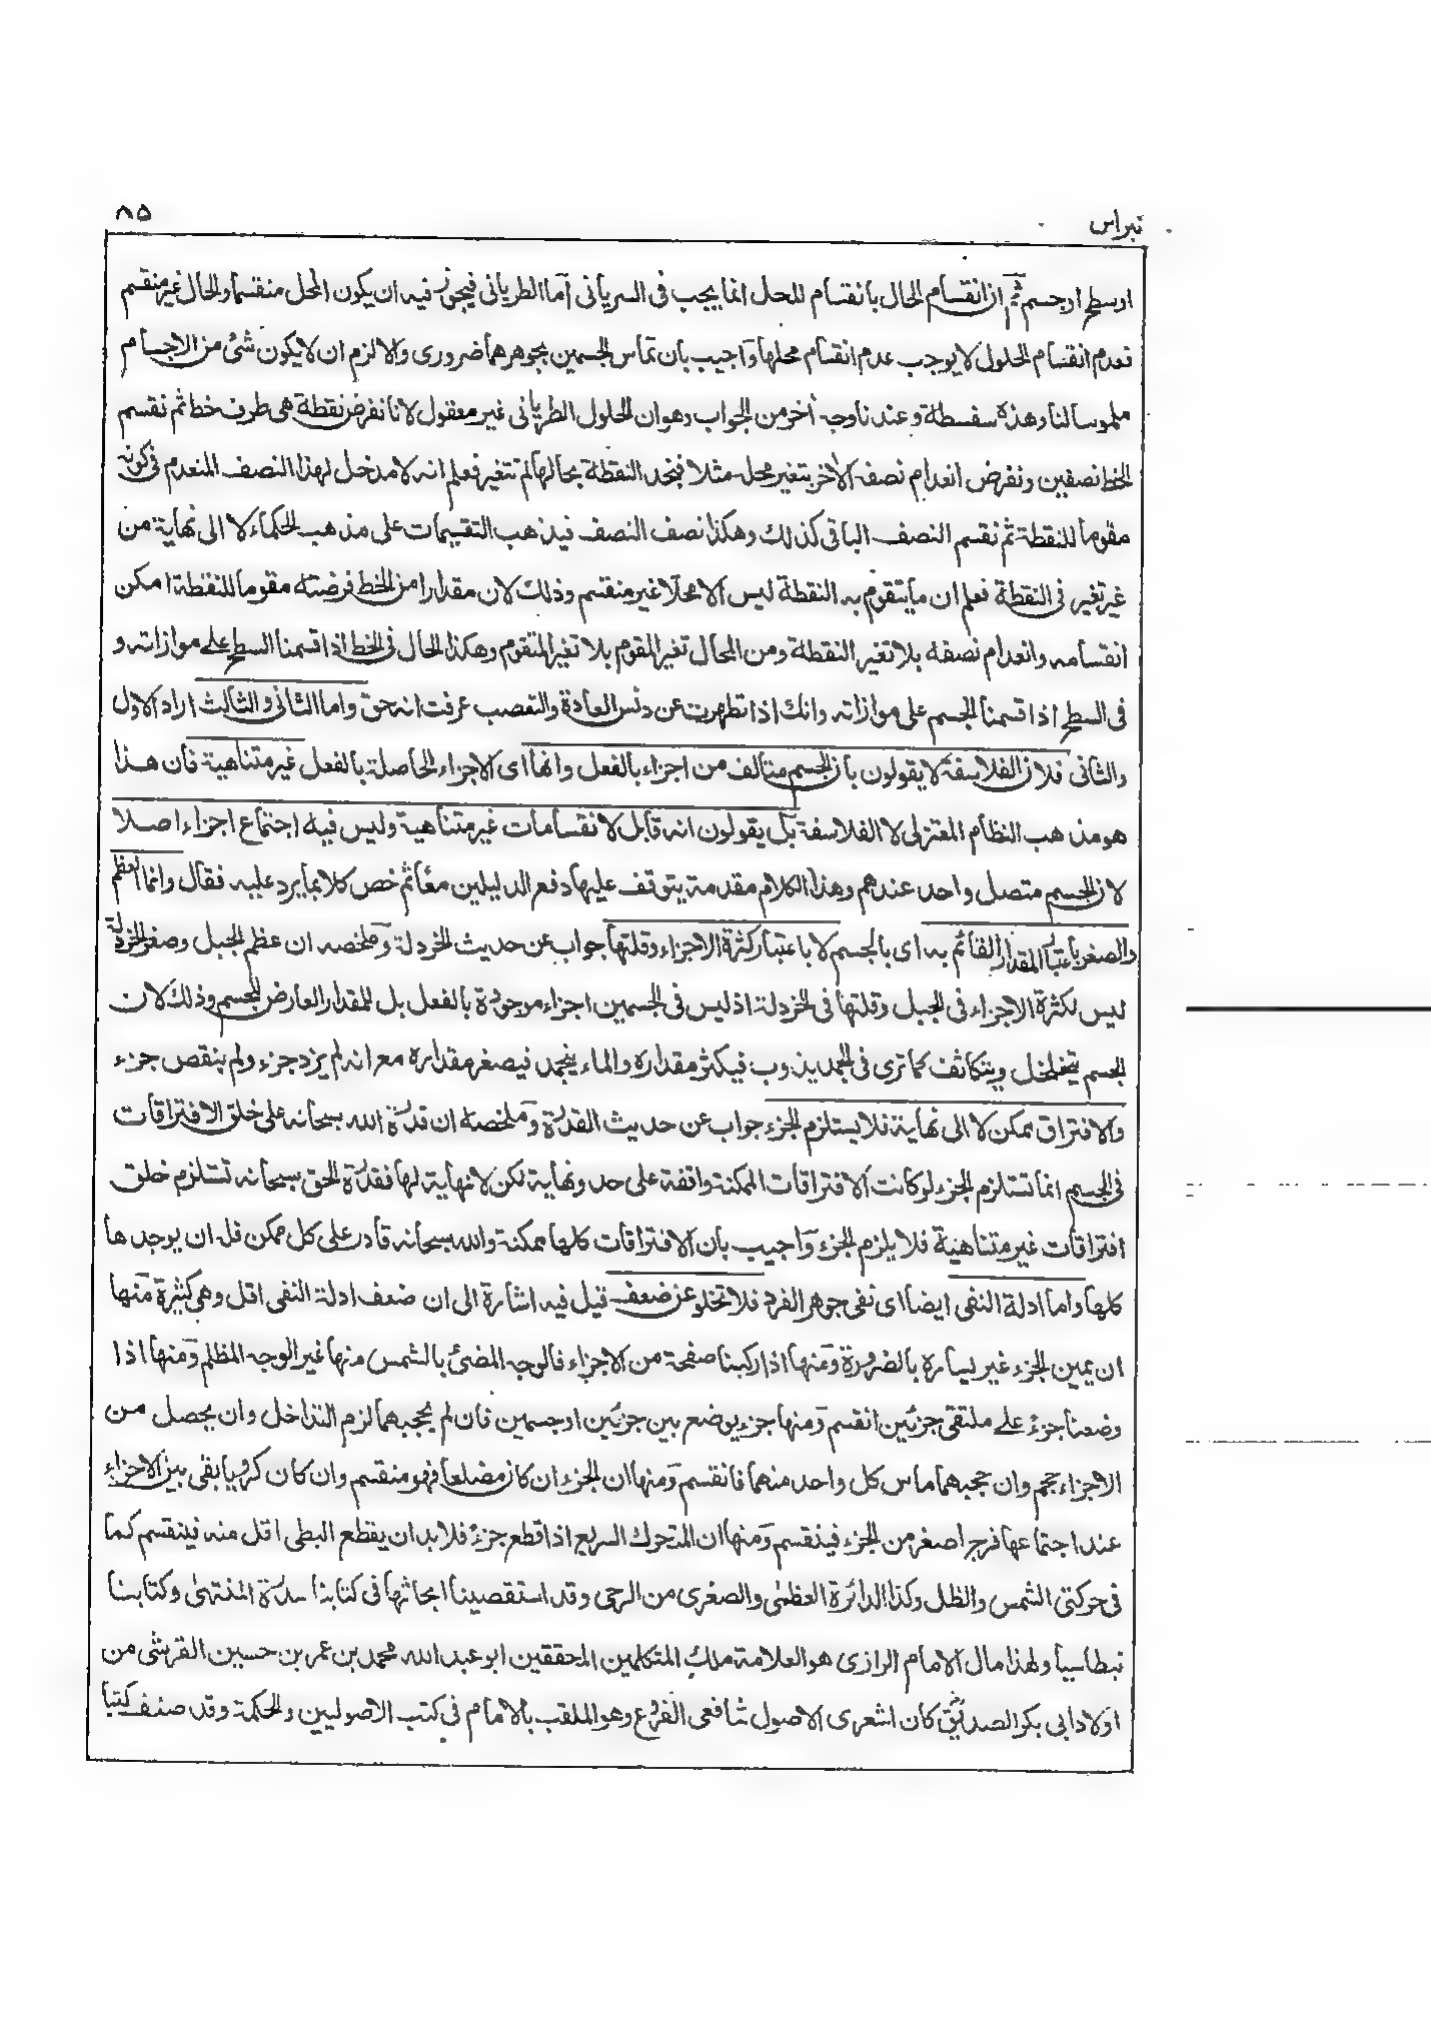 نبراس
۸۵
او سطح او جسم ثم ان انقسام الحال بانقسام المحل انما يجب في السرياني اما الطرياني فيجوز فيه ان يكون المحل منقسما والحال غير منقسم
فعدم انقسام الحلول لا يوجب عدم انقسام محلها واجيب بان تماس الجسمين بجوهرهما ضروري والا لزم ان لا يكون شئ من الاجسام
ملموسا لنا وهذه سفسطة وعندنا وجه اخر من الجواب وهو ان الحلول الطرياني غير معقول لانا نفرض نقطة هي طرف خط ثم نقسم
الخط نصفين ونفرض انعدام نصفه الاخر بتغير محله مثلا فنجد النقطة بحالها لم تتغير فعلم انه لا مدخل لهذا النصف المنعدم في كونه
مقوما للنقطة ثم نقسم النصف الباقي كذلك وهكذا نصف النصف فيذهب التقسيمات على مذهب الحكماء لا الى نهاية من
غير تغير في النقطة فعلم ان ما يتقوم به النقطة ليس الا محلا غير منقسم وذلك لان مقدارا من الخط فرضته مقوما للنقطة امكن
انقسامه وانعدام نصفه بلا تغير النقطة ومن المحال تغير المقوم بلا تغير المتقوم وهكذا الحال في الخط اذا قسمنا السطح على موازاته و
في السطح اذا قسمنا الجسم على موازاته وانك اذا تطهرت عن دنس العادة والتعصب عرفت انه حق واما الثاني والثالث اراد الاول
والثاني فلان الفلاسفة لا يقولون بان الجسم متألف من اجزاء بالفعل وانها اى الاجزاء الحاصلة بالفعل غير متناهية فان هذا
هو مذهب النظام المعتزلي لا الفلاسفة بل يقولون انه قابل لانقسامات غير متناهية وليس فيه اجتماع اجزاء اصلا
لان الجسم متصل واحد عندهم وهذا الكلام مقدمة يتوقف عليها دفع الدليلين معا ثم خص كلا بما يرد عليه فقال وانما العظم
والصغر باعتبار المقدار القائم به اى بالجسم لا باعتبار كثرة الاجزاء وقلتها جواب عن حديث الخردلة وملخصه ان عظم الجبل وصغر الخردلة
ليس لكثرة الاجزاء في الجبل وقلتها في الخردلة اذ ليس في الجسمين اجزاء موجودة بالفعل بل للمقدار العارض للجسم وذلك لان
الجسم يتخلخل ويتكاثف كما ترى في الجمد يذوب فيكثر مقداره والماء ينجمد فيصغر مقداره مع انه لم يزد جزء ولم ينقص جزء
والافتراق ممكن لا الى نهاية فلا يستلزم الجزء جواب عن حديث القدرة وملخصه ان قدرة الله سبحانه على خلق الافتراقات
في الجسم انما تستلزم الجزء لو كانت الافتراقات الممكنة واقفة على حد ونهاية لكن لا نهاية لها فقدرة الحق سبحانه تستلزم خلق
افتراقات غير متناهية فلا يلزم الجزء واجيب بان الافتراقات كلها ممكنة والله سبحانه قادر على كل ممكن فله ان يوجدها
كلها واما ادلة النفي ايضا اى نفي جوهر الفرد فلا تخلو عن ضعف قيل فيه اشارة الى ان ضعف ادلة النفي اقل وهي كثيرة منها
ان يمين الجزء غير يساره بالضرورة ومنها اذا ركبنا صفحة من الاجزاء فالوجه المضئ بالشمس منها غير الوجه المظلم ومنها اذا
وضعنا جزء على ملتقى جزئين انقسم ومنها جزء يوضع بين جزئين او جسمين فان لم يحجبهما لزم التداخل وان يحصل من
الاجزاء حجم وان حجبهما ماس كل واحد منهما فانقسم ومنها ان الجزء ان كان مضلعا فهو منقسم وان كان كرويا بقى بين الاجزاء
عند اجتماعها فرج اصغر من الجزء فينقسم ومنها ان المتحرك السريع اذا قطع جزء فلا بد ان يقطع البطي اقل منه فينقسم كما
في حركتي الشمس والظل وكذا الدائرة العظمى والصغرى من الرحى وقد استقصينا ابحاثها في كتابنا سدرة المنتهى وكتابنا
نبطاسيا ولهذا مال الامام الرازي هو العلامة ملك المتكلمين المحققين ابو عبد الله محمد بن عمر بن حسين القرشي من
اولاد ابي بكر الصديق كان اشعري الاصول شافعي الفروع وهو الملقب بالامام في كتب الاصوليين والحكمة وقد صنف كتبا